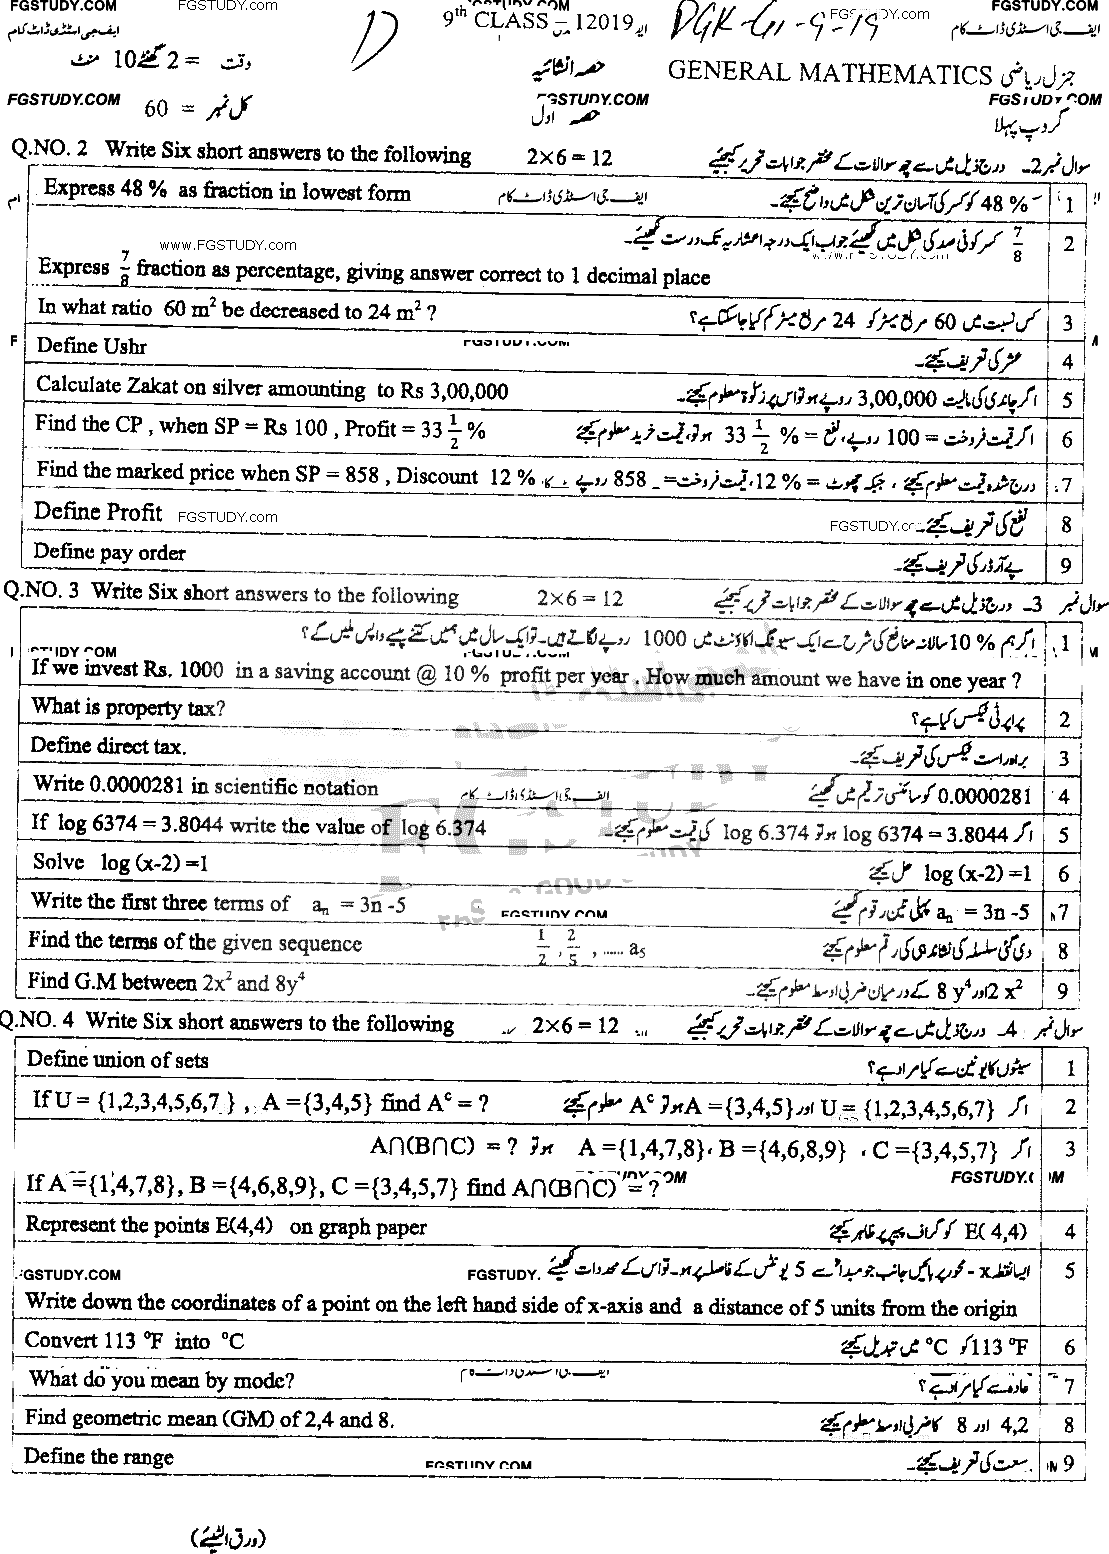 FGSTUDY.COM FGSTUDY.COM FGSTUDY.com FGSTUDY.COM
ایف جی اسٹڈی ڈاٹ کام 9th CLASS – 12019 DGK-G1-9-19 ایف جی اسٹڈی ڈاٹ کام
وقت = 2 گھنٹے 10 منٹ حصہ انشائیہ GENERAL MATHEMATICS جنرل ریاضی
FGSTUDY.COM کل نمبر = 60 حصہ اول FGSTUDY.COM FGSTUDY.COM
گروپ پہلا
Q.NO. 2 Write Six short answers to the following 2×6 = 12 سوال نمبر 2۔ درج ذیل میں سے چھ سوالات کے مختصر جوابات تحریر کیجئے
Express 48 % as fraction in lowest form ایف جی اسٹڈی ڈاٹ کام 48 % کو کسر کی آسان ترین شکل میں واضح کیجئے۔ 1
www.FGSTUDY.com 7/8 کسر کو فی صد کی شکل میں لکھیئے جواب ایک درجہ اعشاریہ تک درست لکھیئے۔ 2
Express 7/8 fraction as percentage, giving answer correct to 1 decimal place
In what ratio 60 m² be decreased to 24 m² ? کس نسبت میں 60 مربع میٹر کو 24 مربع میٹر کم کیا جا سکتا ہے؟ 3
Define Ushr FGSTUDY.COM عشر کی تعریف کیجئے۔ 4
Calculate Zakat on silver amounting to Rs 3,00,000 اگر چاندی کی مالیت 3,00,000 روپے ہو تو اس پر زکوٰۃ معلوم کیجئے۔ 5
Find the CP , when SP = Rs 100 , Profit = 33 1/2 % اگر قیمت فروخت = 100 روپے، نفع = 33 1/2 % ہو تو، قیمت خرید معلوم کیجئے 6
Find the marked price when SP = 858 , Discount 12 % درج شدہ قیمت معلوم کیجئے ، جبکہ چھوٹ = 12 %، قیمت فروخت = 858 روپے 7
Define Profit FGSTUDY.com نفع کی تعریف کیجئے۔ 8
Define pay order پے آرڈر کی تعریف کیجئے۔ 9
Q.NO. 3 Write Six short answers to the following 2×6 = 12 سوال نمبر 3۔ درج ذیل میں سے چھ سوالات کے مختصر جوابات تحریر کیجئے
اگر ہم % 10 سالانہ منافع کی شرح سے ایک سیونگ اکاؤنٹ میں 1000 روپے لگاتے ہیں۔ تو ایک سال میں ہمیں کتنے پیسے واپس ملیں گے؟ 1
If we invest Rs. 1000 in a saving account @ 10 % profit per year . How much amount we have in one year ?
What is property tax? پراپرٹی ٹیکس کیا ہے؟ 2
Define direct tax. براہ راست ٹیکس کی تعریف کیجئے۔ 3
Write 0.0000281 in scientific notation ایف جی اسٹڈی ڈاٹ کام 0.0000281 کو سائنسی ترقیم میں لکھیئے 4
If log 6374 = 3.8044 write the value of log 6.374 اگر log 6374 = 3.8044 ہو تو log 6.374 کی قیمت معلوم کیجئے۔ 5
Solve log (x-2) =1 log (x-2) =1 حل کیجئے 6
Write the first three terms of aₙ = 3n -5 FGSTUDY.COM aₙ = 3n -5 پہلی تین رقوم لکھیئے 7
Find the terms of the given sequence 1/2 , 2/5 , ...... a₅ دی گئی سلسلہ کی نشاندہی کی رقم معلوم کیجئے 8
Find G.M between 2x² and 8y⁴ 2 x² اور 8 y⁴ کے درمیان ضربی اوسط معلوم کیجئے۔ 9
Q.NO. 4 Write Six short answers to the following 2×6 = 12 سوال نمبر 4۔ درج ذیل میں سے چھ سوالات کے مختصر جوابات تحریر کیجئے
Define union of sets سیٹوں کا یونین سے کیا مراد ہے؟ 1
If U = {1,2,3,4,5,6,7 } , A ={3,4,5} find Aᶜ = ? اگر U = {1,2,3,4,5,6,7} اور A ={3,4,5} ہو تو Aᶜ معلوم کیجئے 2
اگر A ={1,4,7,8}، B ={4,6,8,9} ، C ={3,4,5,7} ہو تو A∩(B∩C) = ? 3
If A ={1,4,7,8}, B ={4,6,8,9}, C ={3,4,5,7} find A∩(B∩C) = ? FGSTUDY.COM
Represent the points E(4,4) on graph paper E( 4,4) کو گراف پیپر پر ظاہر کیجئے 4
FGSTUDY.COM FGSTUDY. ایسا نقطہ x - محور پر بائیں جانب جو مبدا سے 5 یونٹس کے فاصلہ پر ہو۔ تو اس کے محددات لکھیئے 5
Write down the coordinates of a point on the left hand side of x-axis and a distance of 5 units from the origin
Convert 113 ⁰F into ⁰C 113 ⁰F کو ⁰C میں تبدیل کیجئے 6
What do you mean by mode? عادہ سے کیا مراد ہے؟ 7
Find geometric mean (GM) of 2,4 and 8. 4,2 اور 8 کا ضربی اوسط معلوم کیجئے 8
Define the range FGSTUDY.COM سعت کی تعریف کیجئے۔ 9
(ورق الٹیئے)